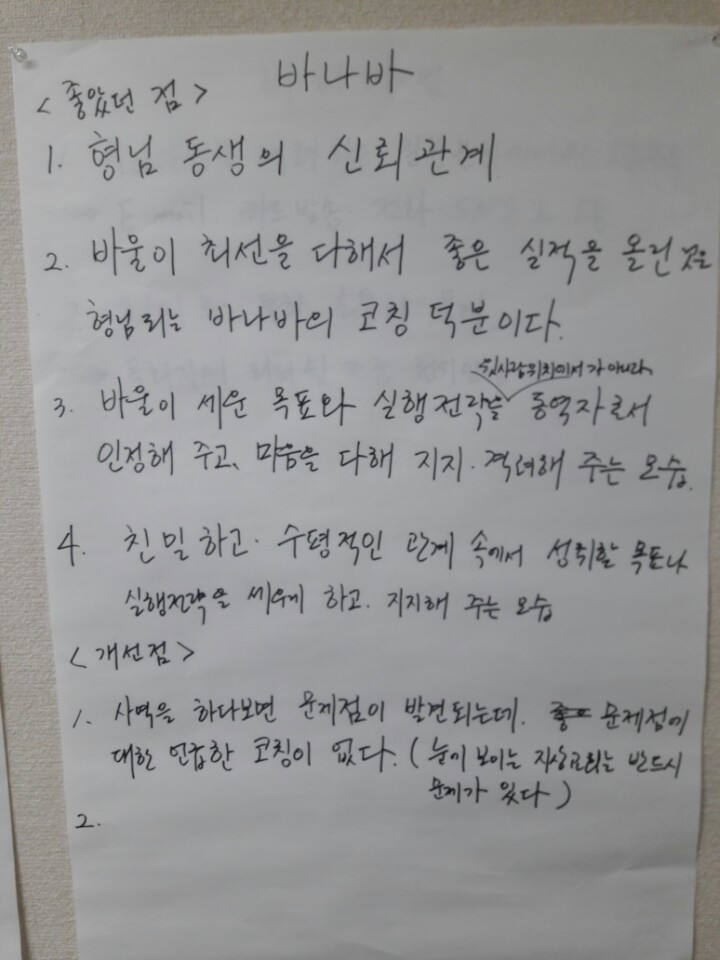 바나바
<좋았던 점>
1. 형님 동생의 신뢰관계
2. 바울이 최선을 다해서 좋은 실적을 올린 것은
형님되는 바나바의 코칭 덕분이다.
상사위치에서가 아니라
3. 바울이 세운 목표와 실행전략을 동역자로서
인정해 주고, 마음을 다해 지지·격려해 주는 모습.
4. 친밀하고· 수평적인 관계 속에서 성취할 목표나
실행전략을 세우게 하고· 지지해 주는 모습
<개선점>
1. 사역을 하다보면 문제점이 발견되는데. 문제점에
대한 언급한 코칭이 없다. (눈에 보이는 지상교회는 반드시
문제가 있다)
2.